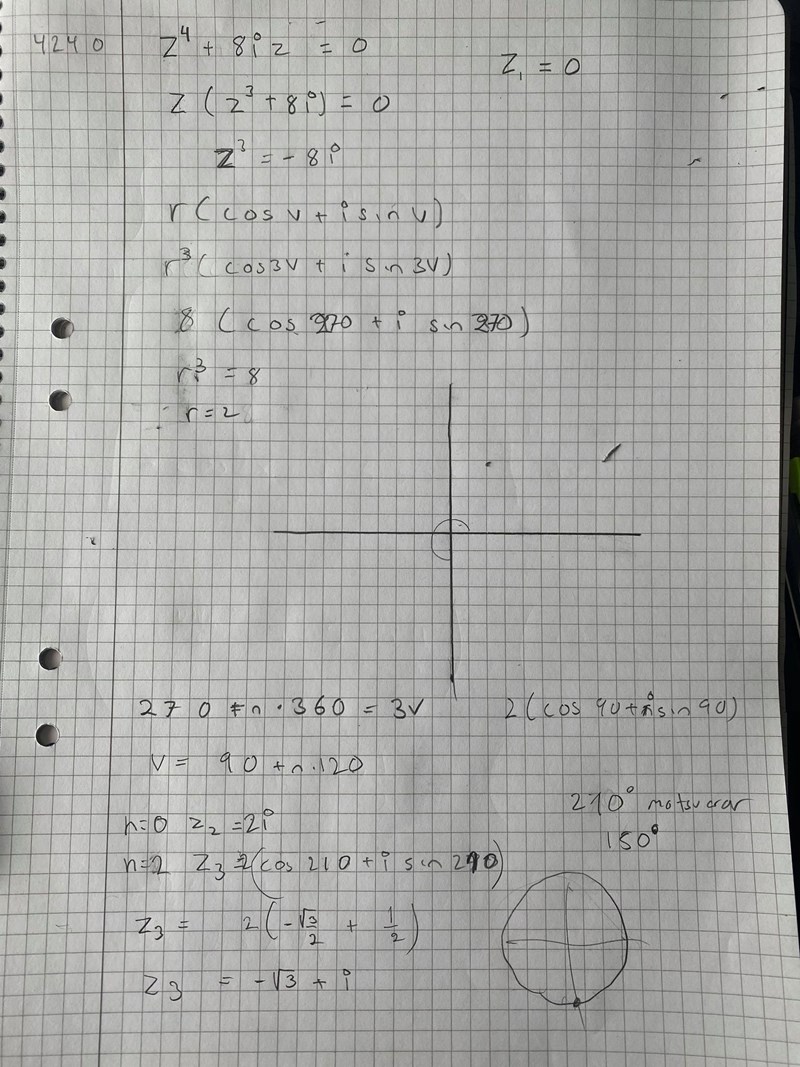 4240 z⁴ + 8iz = 0
z₁ = 0
z(z³ + 8i) = 0
z³ = -8i
r(cos v + i sin v)
r³(cos3v + i sin 3v)
8 (cos 270 + i sin 270)
r³ = 8
r = 2
270 + n·360 = 3v
2(cos 90 + i sin 90)
v = 90 + n·120
210° motsvarar
150°
n=0 z₂ = 2i
n=2 z₃ = 2(cos 210 + i sin 210)
z₃ = 2(-√3/2 + 1/2)
z₃ = -√3 + i